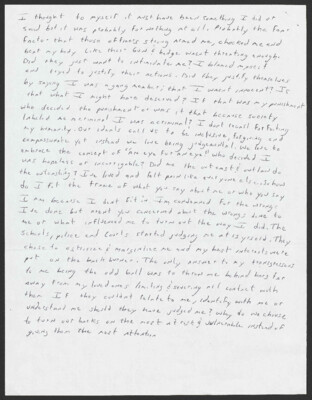 I thought to myself it must have been something I did or
said but it was probably for nothing at all. Probably the fear
factor that those officers strong armed me, choked me and
beat my body like their badge wasn't threating enough.
Did they just want to intimidate me? I blamed myself
and tried to justify their actions. Did they justify themselves
by saying I was a gang member; that I wasn't innocent? Is
that what I might have deserved? If that was my punishment
who decided the punishment or was it that because society
labeled me a criminal I was a criminal? I don't recall forfeiting
my humanity. Our ideals call us to be inclusive, forgiving and
compassionate yet instead we love being judgemental. We love to
embrace the concept of "an eye for an eye" who decided I
was hopeless or incorrigible? Did me the outcast/outlaw do
the unleashing? I've lived and felt pain like everyone else. So how
do I fit the frame of what you say about me or who you say
I am because I don't fit in. I'm condemned for the wrongs
I've done but aren't you concerned about the wrongs done to
me or what influenced me to turn out the way I did. The
schools, police and courts started judging me at 13 yrs old. They
chose to ostracize & marginalize me and my best interests were
put on the back burner. The only answer to my transgressions
to me being the odd ball was to throw me behind bars far
away from my land away from family & severing all contact with
them. If they couldn't relate to me, identify with me or
understand me should they have judged me? Why do we choose
to turn our backs on the most at risk & vulnerable instead of
giving them the most attention